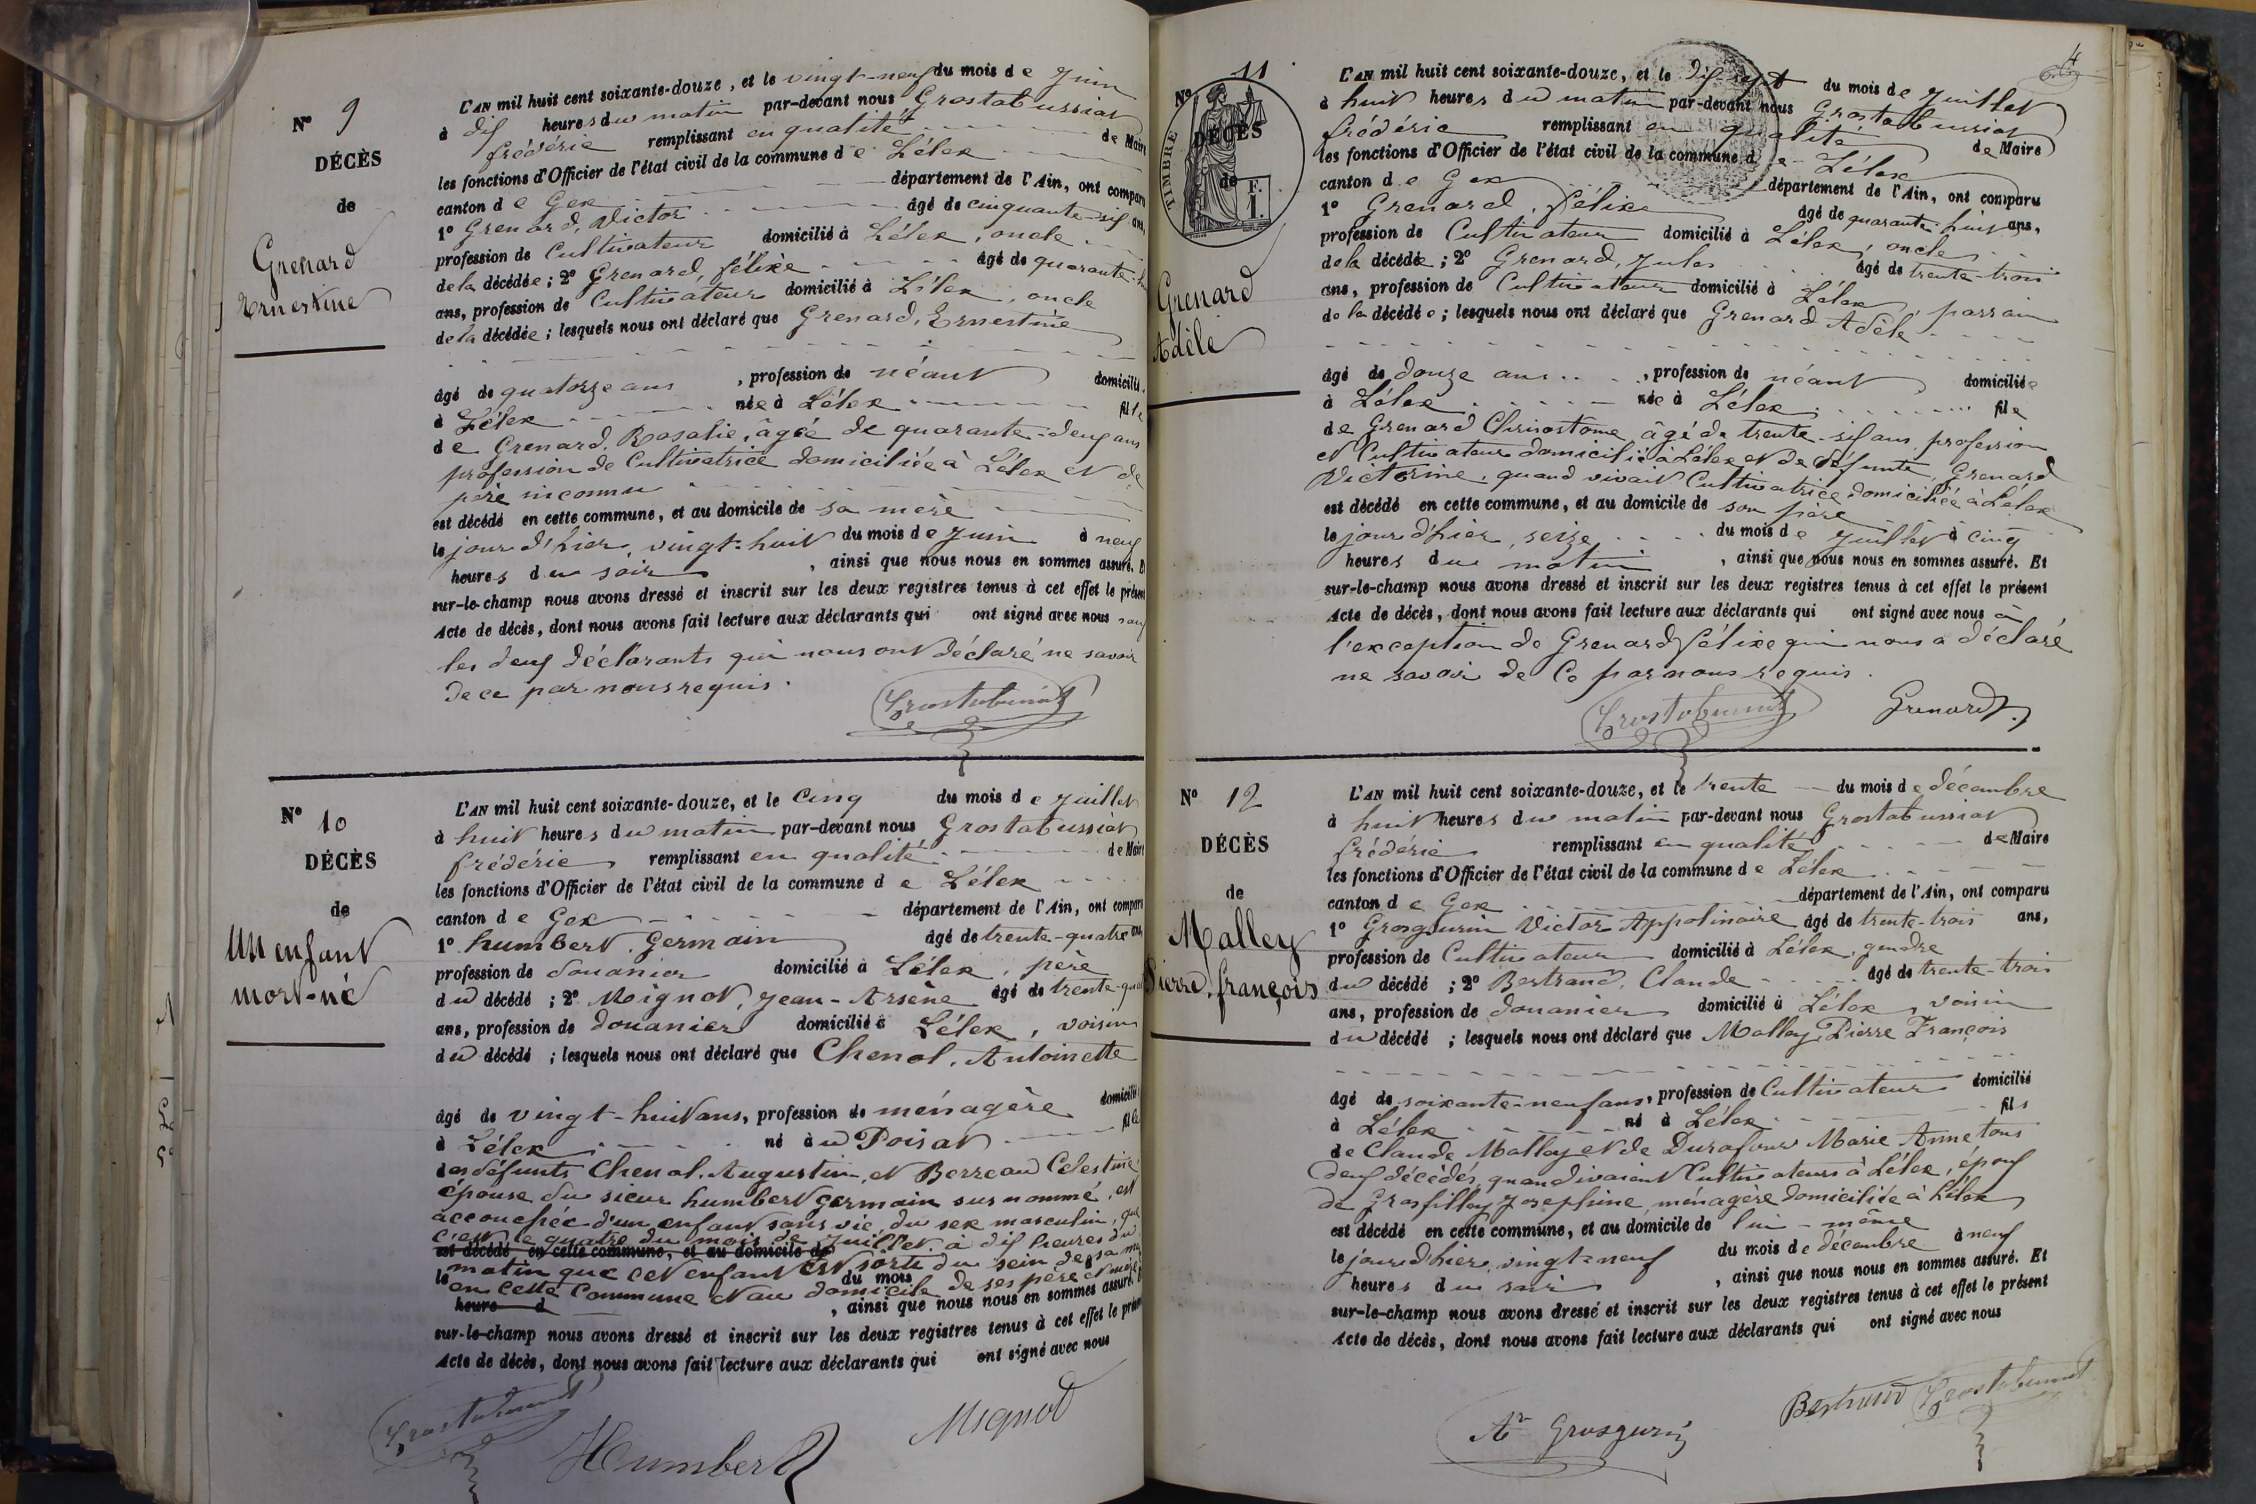 N° 9
DÉCÈS
de
Grenard
Ernestine
L'AN mil huit cent soixante-douze, et le vingt-neuf du mois de Juin
à dix heures du matin par-devant nous Grostabussiat
frédéric remplissant en qualité de Maire
les fonctions d'Officier de l'état civil de la commune de Lélex
canton de Gex département de l'Ain, ont comparu
1° Grenard, Victor âgé de cinquante-six ans,
profession de Cultivateur domicilié à Lélex, oncle
de la décédée; 2° Grenard, félixe âgé de quarante-
ans, profession de Cultivateur domicilié à Lélex, oncle
de la décédée; lesquels nous ont déclaré que Grenard, Ernestine
âgé de quatorze ans, profession de néant domicilié
à Lélex née à Lélex fille
de Grenard, Rosalie, âgée de quarante-deux ans
profession de Cultivatrice domiciliée à Lélex et de
père inconnu
est décédé en cette commune, et au domicile de sa mère
le jour d'hier, vingt-huit du mois de Juin à neuf
heures du soir, ainsi que nous nous en sommes assuré. Et
sur-le-champ nous avons dressé et inscrit sur les deux registres tenus à cet effet le présent
Acte de décès, dont nous avons fait lecture aux déclarants qui ont signé avec nous sauf
les deux déclarants qui nous ont déclaré ne savoir
de ce par nous requis.
Grostabussiat
N° 10
DÉCÈS
de
Un enfant
mort-né
L'AN mil huit cent soixante-douze, et le Cinq du mois de Juillet
à huit heures du matin par-devant nous Grostabussiat
frédéric remplissant en qualité de Maire
les fonctions d'Officier de l'état civil de la commune de Lélex
canton de Gex département de l'Ain, ont comparu
1° humbert, Germain âgé de trente-quatre ans
profession de douanier domicilié à Lélex, père
du décédé; 2° Moignot, Jean-Arsène âgé de trente-
ans, profession de douanier domicilié à Lélex, voisin
du décédé; lesquels nous ont déclaré que Chenal, Antoinette
âgé de vingt-huit ans, profession de ménagère domicilié
à Lélex né au Poisat fille
des défunts Chenal, Augustin, et Berreau Célestine
épouse du sieur humbert Germain sus nommé, est
accouchée d'un enfant sans vie, du sex masculin, que
c'est le quatre du mois de Juillet à dix heures du
est décédé en cette commune, et au domicile de
matin que cet enfant est sorti du sein de sa mère
le du mois
en cette Commune et au domicile de ses père et mère
heure d, ainsi que nous nous en sommes assuré. Et
sur-le-champ nous avons dressé et inscrit sur les deux registres tenus à cet effet le présent
Acte de décès, dont nous avons fait lecture aux déclarants qui ont signé avec nous
Grostabussiat
Humbert
Mignot
4
N° 11
TIMBRE
DÉCÈS
de
F.
1.
Grenard
Adèle
L'AN mil huit cent soixante-douze, et le Dix-sept du mois de Juillet
à huit heures du matin par-devant nous Grostabussiat
frédéric remplissant en qualité de Maire
les fonctions d'Officier de l'état civil de la commune de Lélex
canton de Gex département de l'Ain, ont comparu
1° Grenard, félixe âgé de quarante-huit ans,
profession de Cultivateur domicilié à Lélex, oncle
de la décédée; 2° Grenard, Jules âgé de trente-trois
ans, profession de Cultivateur domicilié à Lélex, parrain
de la décédée; lesquels nous ont déclaré que Grenard Adèle
âgé de douze ans, profession de néant domiciliée
à Lélex née à Lélex fille
de Grenard Chrisostome âgé de trente-six ans profession
et Cultivateur domicilié à Lélex et de défunte, Grenard
Victorine, quand vivait Cultivatrice domiciliée à Lélex
est décédé en cette commune, et au domicile de son père
le jour d'hier, seize du mois de Juillet à cinq
heures du matin, ainsi que nous nous en sommes assuré. Et
sur-le-champ nous avons dressé et inscrit sur les deux registres tenus à cet effet le présent
Acte de décès, dont nous avons fait lecture aux déclarants qui ont signé avec nous à
l'exception de Grenard félixe qui nous a déclaré
ne savoir de Ce par nous requis.
Grostabussiat
Grenard J.
N° 12
DÉCÈS
de
Malley
Pierre, françois
L'AN mil huit cent soixante-douze, et le trente du mois de décembre
à huit heures du matin par-devant nous Grostabussiat
frédéric remplissant en qualité de Maire
les fonctions d'Officier de l'état civil de la commune de Lélex
canton de Gex département de l'Ain, ont comparu
1° Grosgurin Victor Appolinaire âgé de trente-trois ans,
profession de Cultivateur domicilié à Lélex, gendre
du décédé; 2° Bertrand, Claude âgé de trente-trois
ans, profession de douanier domicilié à Lélex, voisin
du décédé; lesquels nous ont déclaré que Malley, Pierre François
âgé de soixante-neuf ans, profession de Cultivateur domicilié
à Lélex né à Lélex fils
de Claude Malley et de Durafour Marie Anne, tous
deux décédés, quand vivaient Cultivateurs à Lélex, époux
de Grosfilley Josephine, ménagère domiciliée à Lélex
est décédé en cette commune, et au domicile de lui-même
le jour d'hier, vingt-neuf du mois de décembre à neuf
heures du soir, ainsi que nous nous en sommes assuré. Et
sur-le-champ nous avons dressé et inscrit sur les deux registres tenus à cet effet le présent
Acte de décès, dont nous avons fait lecture aux déclarants qui ont signé avec nous
Ar Grosgurin
Bertrand
Grostabussiat